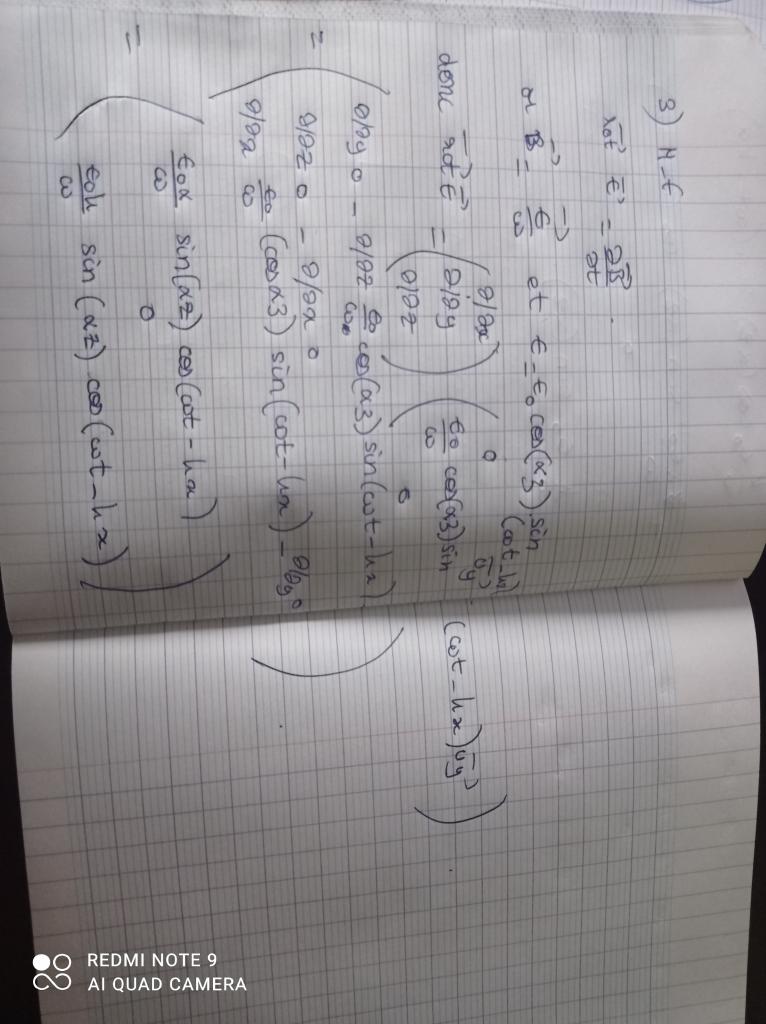 3) M-F
rot E = ∂B/∂t .
or B = E/ω et E = E₀ cos(αz) . sin (ωt - kx) uy
donc rot E = ( ∂/∂x ∂/∂y ∂/∂z ) ( 0 E₀/ω cos(αz) sin (ωt - kx) uy 0 ) .
= ( ∂/∂y 0 - ∂/∂z E₀/ω cos(αz) sin(ωt - kx)
∂/∂z 0 - ∂/∂x 0
∂/∂x E₀/ω (cos αz) sin(ωt - kx) - ∂/∂y 0 )
= ( E₀α/ω sin(αz) cos(ωt - kx)
0
E₀k/ω sin(αz) cos(ωt - kx) )
REDMI NOTE 9
AI QUAD CAMERA